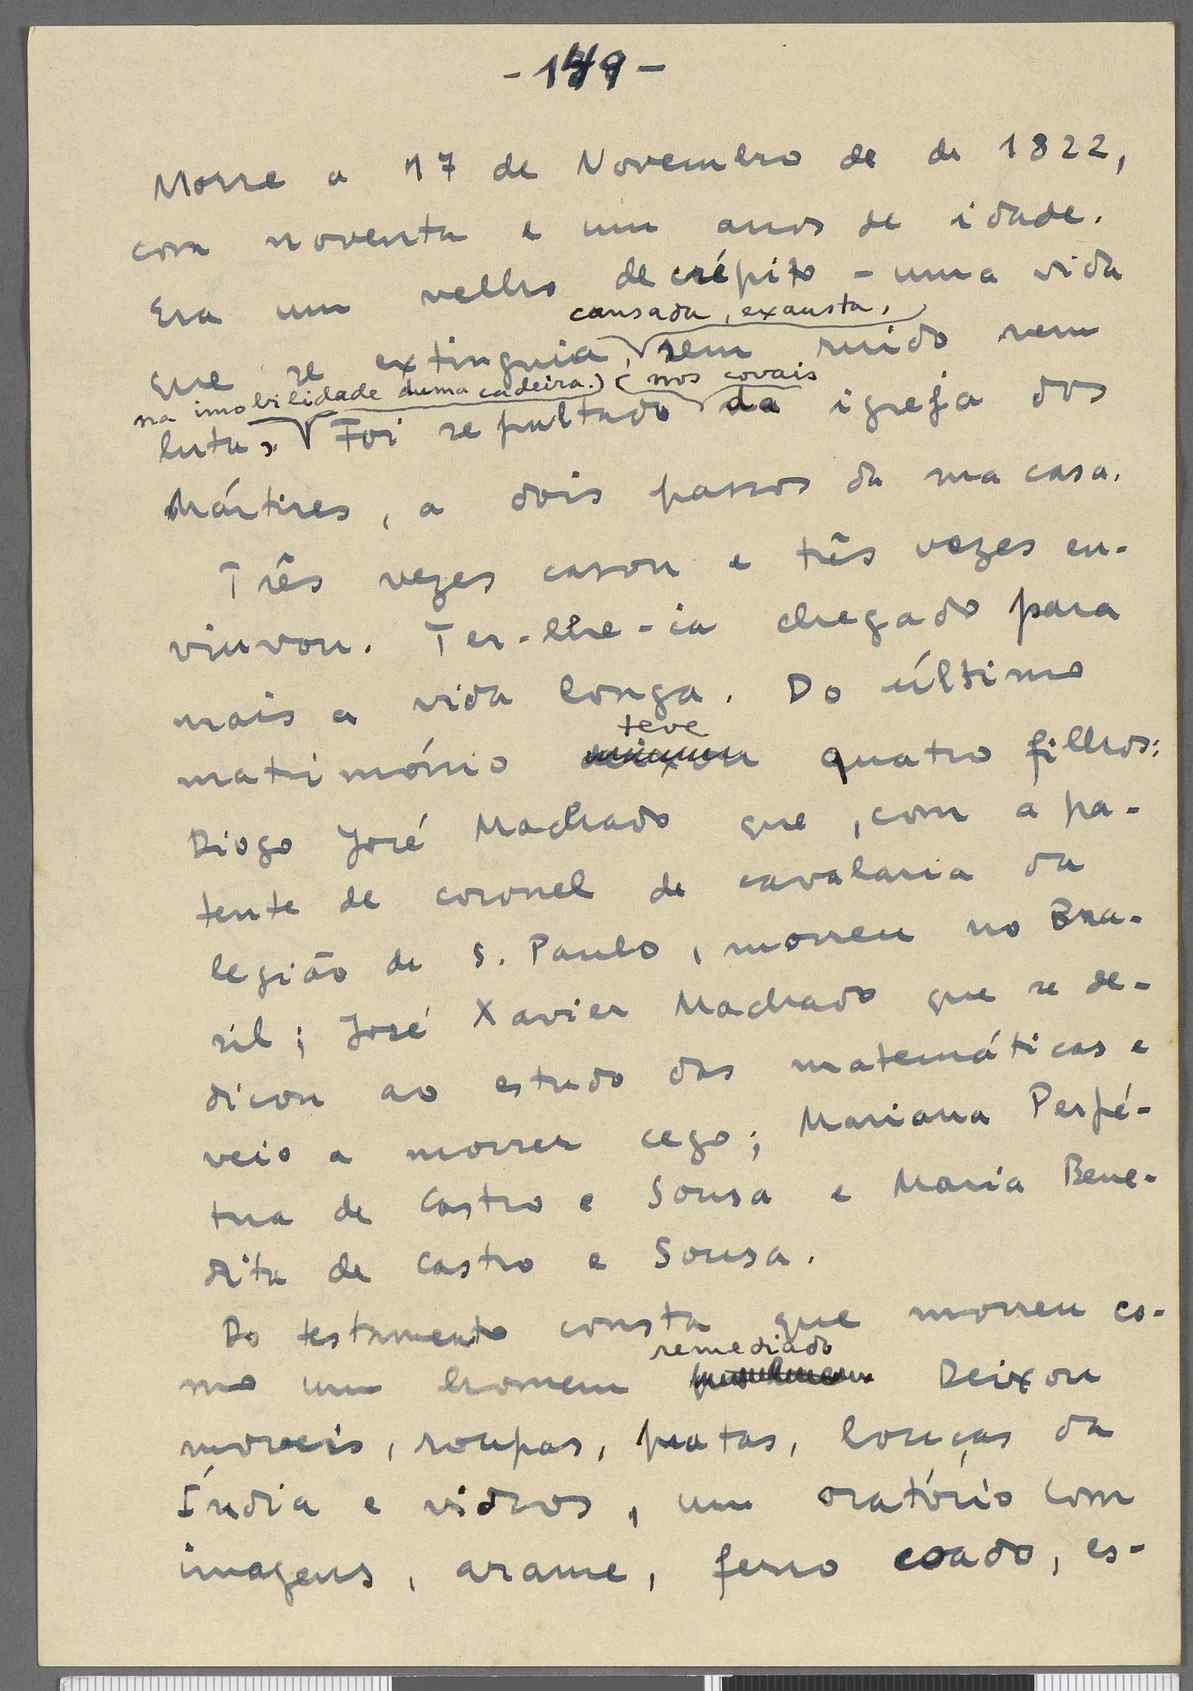 - 149 -
Morre a 17 de Novembro de de 1822,
com noventa e um anos de idade.
Era um velho decrépito - uma vida
cansada, exausta,
que se extinguia, sem ruido nem
na imobilidade duma cadeira. nos covais
luta. Foi sepultado da igreja dos
Mártires, a dois passos da sua casa.
Três vezes casou e três vezes en-
viuvou. Ter-lhe-ia chegado para
mais a vida longa. Do último
teve
matrimónio deixou quatro filhos:
Diogo José Machado que, com a pa-
tente de coronel de cavalaria da
legião de S. Paulo, morreu no Bra-
sil; José Xavier Machado que se de-
dicou ao estudo das matemáticas e
veio a morrer cego; Mariana Perpé-
tua de Castro e Sousa e Maria Bene-
dita de Castro e Sousa.
Do testamento consta que morreu co-
remediado
mo um homem Deixou
moveis, roupas, pratas, louças da
Índia e vidros, um oratório com
imagens, arame, ferro coado, es-